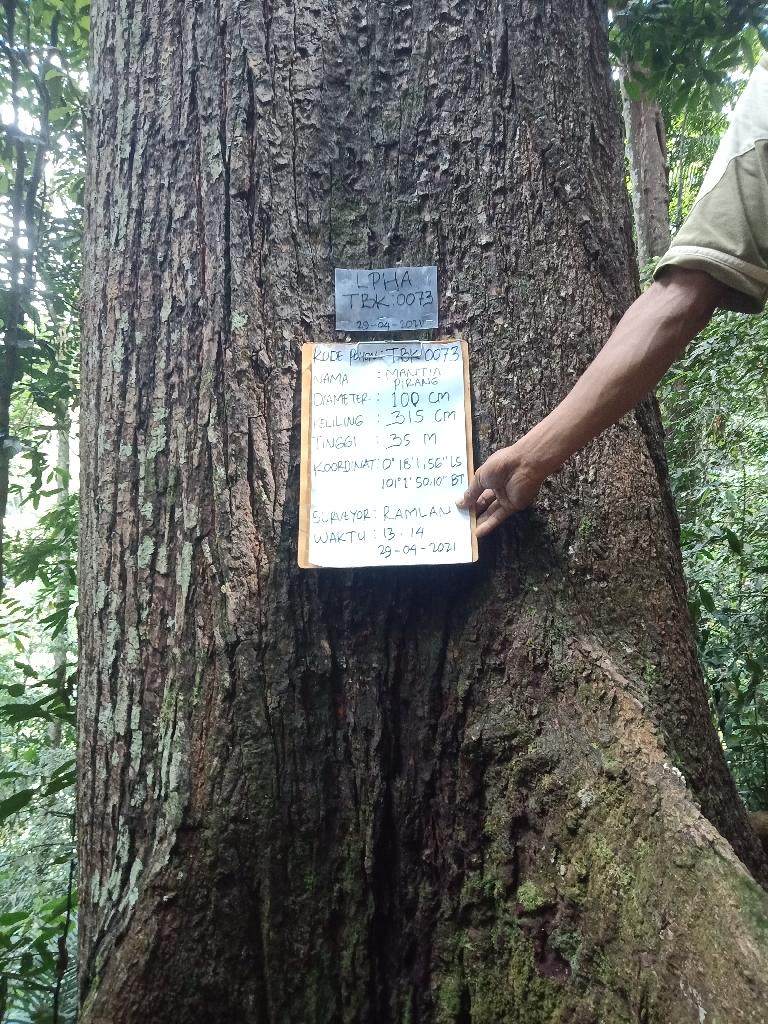 LPHA
TBK:0073
29-04-2021
KODE POHON: TBK:0073
NAMA : MANTIA
PIRANG
DIAMETER : 100 cm
KELILING : 315 Cm
TINGGI : 35 M
KOORDINAT: 0°18'1,56" LS
101°2'50,10" BT
SURVEYOR : RAMLAN
WAKTU : 13.14
29-04-2021